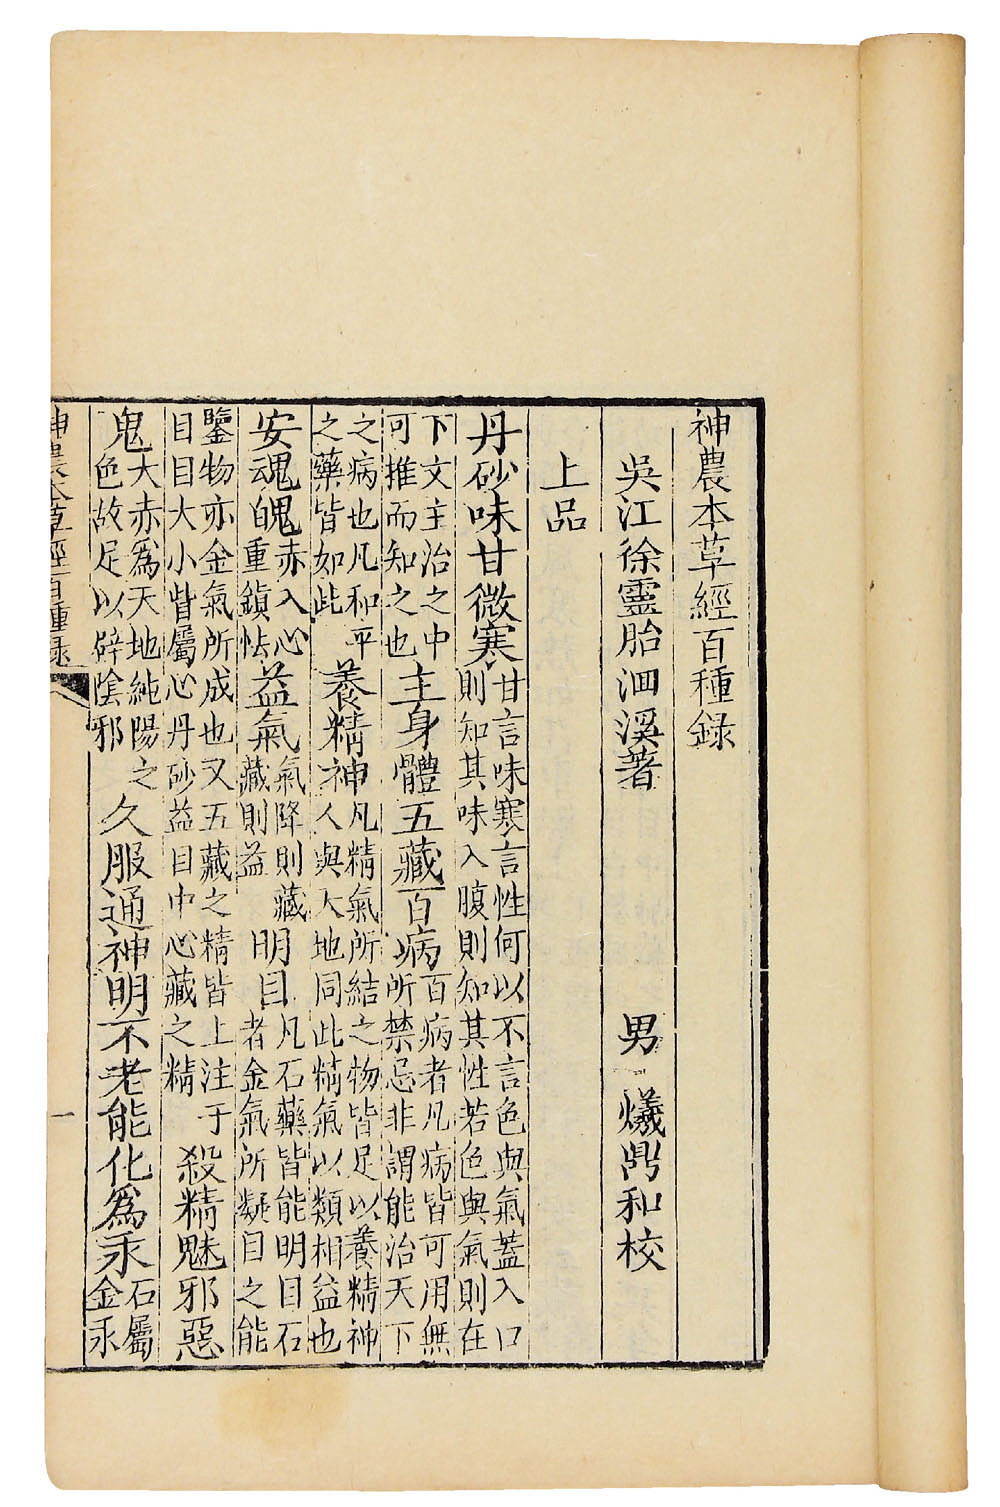 神農本草經百種錄
吳江徐靈胎洄溪著 男 爔鼎和校
上品
丹砂味甘微寒甘言味寒言性何以不言色與氣葢入口則知其味入腹則知其性若色與氣則在
下文主治之中可推而知之也主身體五藏百病百病者凡病皆可用無所禁忌非謂能治天下
之病也凡和平之藥皆如此養精神凡精氣所結之物皆足以養精神人與天地同此精氣以類相益也
安魂魄赤入心重鎮怯益氣氣降則藏藏則益明目凡石藥皆能明目石者金氣所凝目之能
鑒物亦金氣所成也又五藏之精皆上注于目目大小眥屬心丹砂益目中心藏之精殺精魅邪惡
鬼大赤爲天地純陽之色故足以辟陰邪久服通神明不老能化爲汞石屬金汞
神農本草經百種錄 一